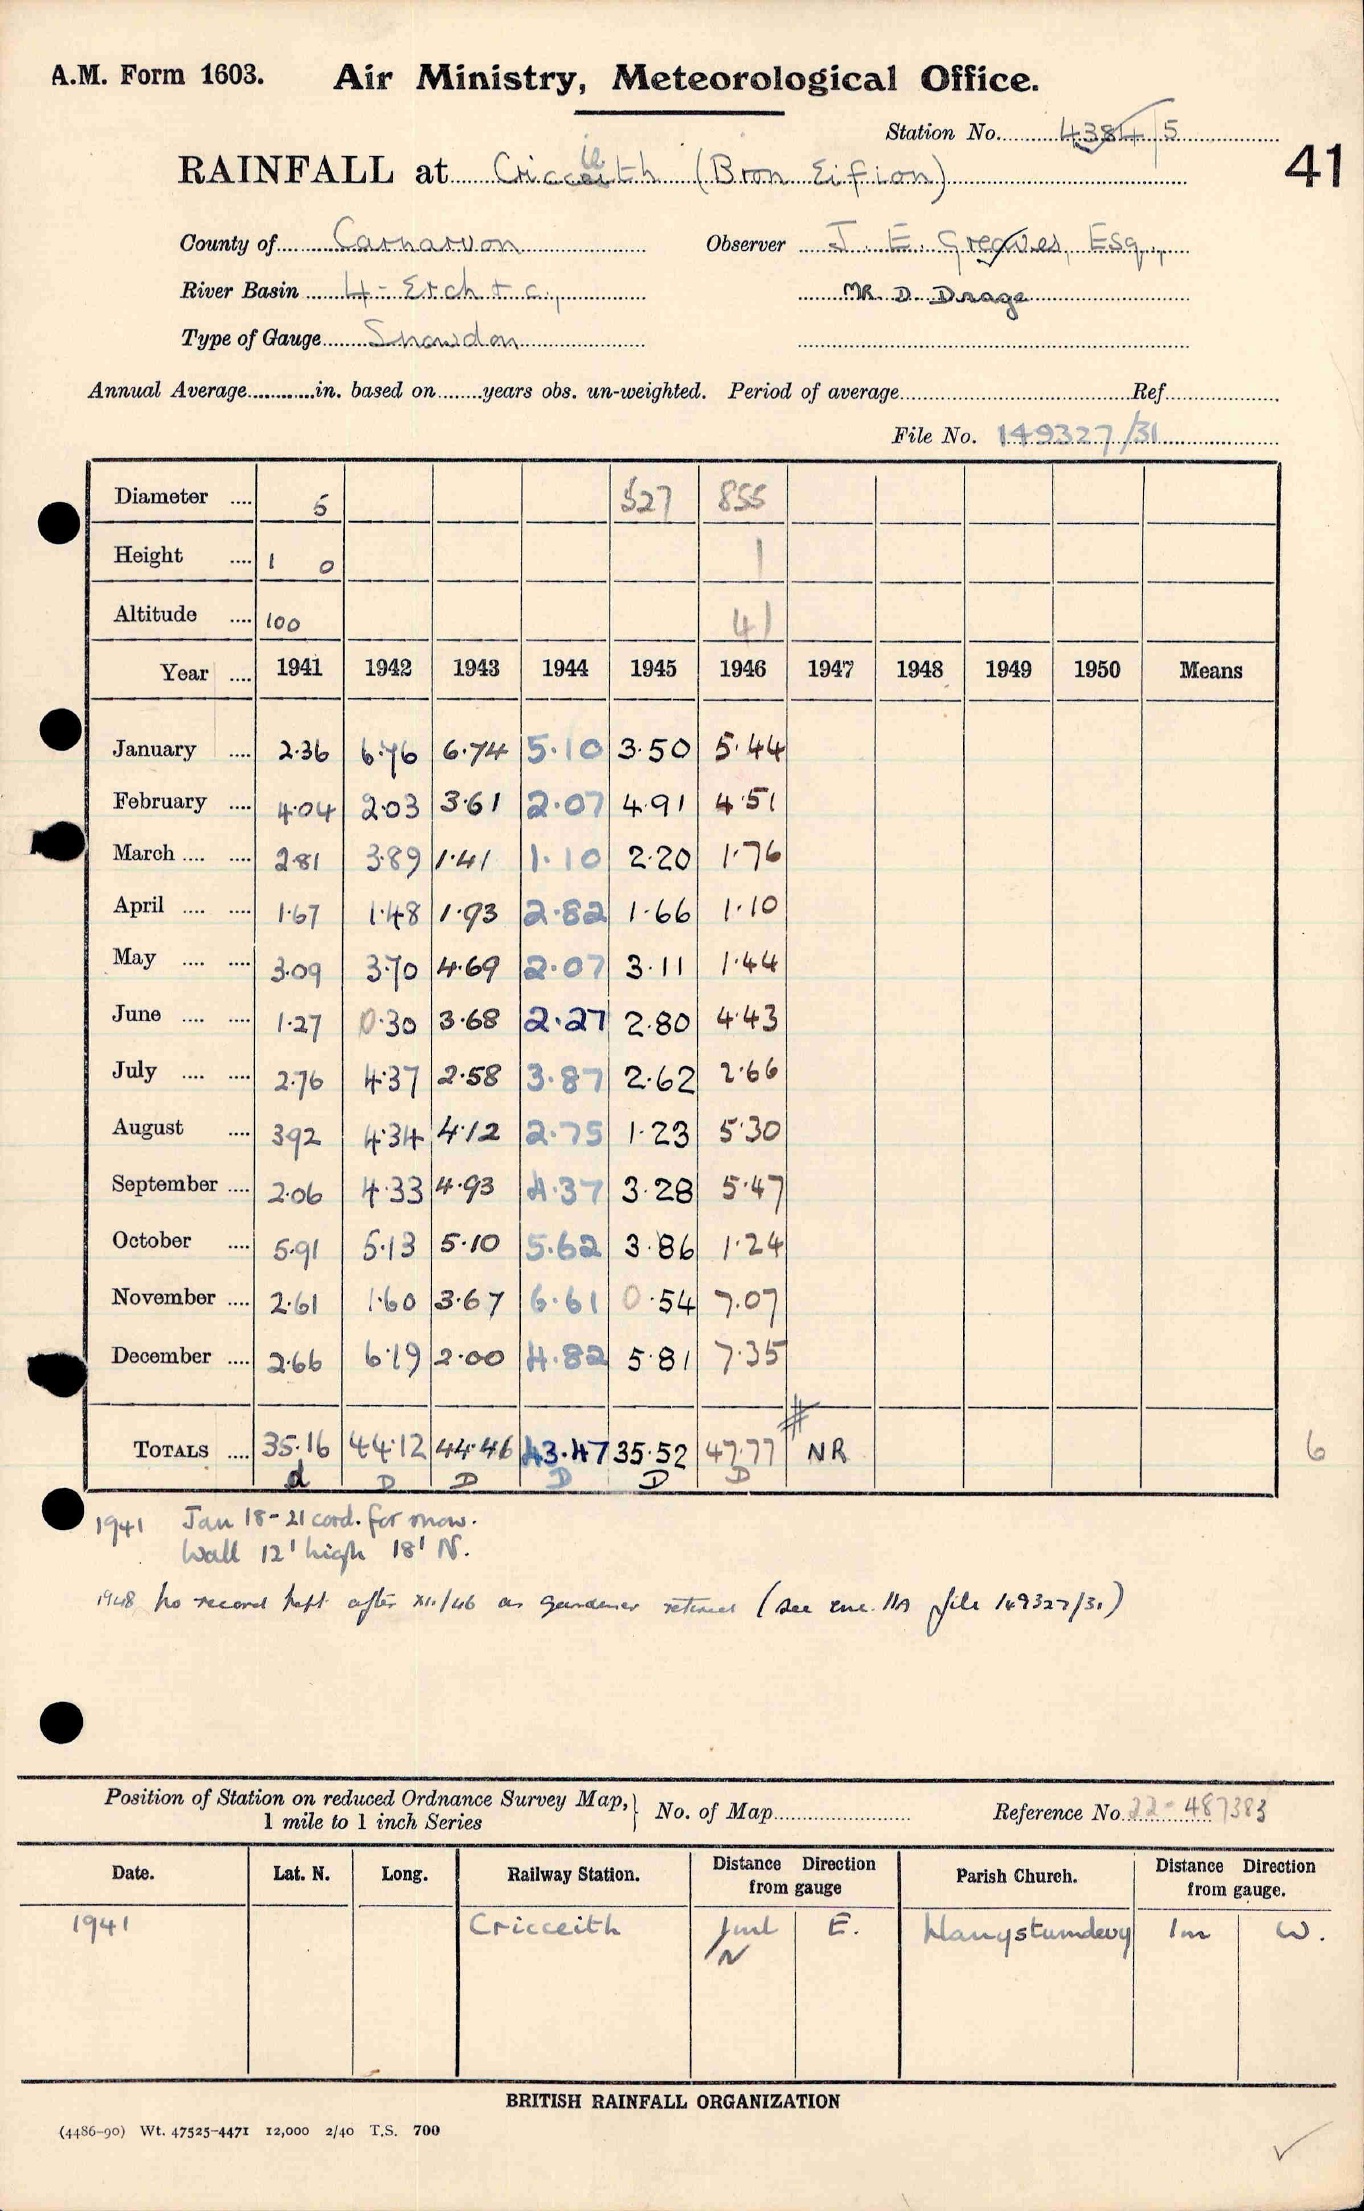 A.M. Form 1603. Air Ministry, Meteorological Office.
Station No. 4384/5
41
RAINFALL at Criccieth (Bron Eifion)
County of Carnarvon Observer J. E. Greaves, Esq.,
River Basin 4 - Erch & c., MR. D. Drage
Type of Gauge Snowdon
Annual Average............in. based on........years obs. un-weighted. Period of average........ Ref........
File No. 149327/31
Diameter .... 5 527 855
Height .... 1 0 1
Altitude .... 100 41
Year .... 1941 1942 1943 1944 1945 1946 1947 1948 1949 1950 Means
January .... 2.36 6.76 6.74 5.10 3.50 5.44
February .... 4.04 2.03 3.61 2.07 4.91 4.51
March .... .... 2.81 3.89 1.41 1.10 2.20 1.76
April .... .... 1.67 1.48 1.93 2.82 1.66 1.10
May .... .... 3.09 3.70 4.69 2.07 3.11 1.44
June .... .... 1.27 0.30 3.68 2.27 2.80 4.43
July .... .... 2.76 4.37 2.58 3.87 2.62 2.66
August .... 3.92 4.34 4.12 2.75 1.23 5.30
September .... 2.06 4.33 4.93 4.37 3.28 5.47
October .... 5.91 5.13 5.10 5.62 3.86 1.24
November .... 2.61 1.60 3.67 6.61 0.54 7.07
December .... 2.66 6.19 2.00 4.82 5.81 7.35
#
TOTALS .... 35.16 44.12 44.46 43.47 35.52 47.77 NR 6
d D D D D D
1941 Jan 18-21 cord. for snow.
Wall 12' high 18' N.
1948 No record kept after XII/46 as gardener retired (see enc. 11A file 149327/31)
Position of Station on reduced Ordnance Survey Map, 1 mile to 1 inch Series } No. of Map........ Reference No. 22-487383
Date. Lat. N. Long. Railway Station. Distance Direction from gauge Parish Church. Distance Direction from gauge.
1941 Cricceith E. Llanystumdwy 1m W.
N
BRITISH RAINFALL ORGANIZATION
(4486-90) Wt. 47525-4471 12,000 2/40 T.S. 700